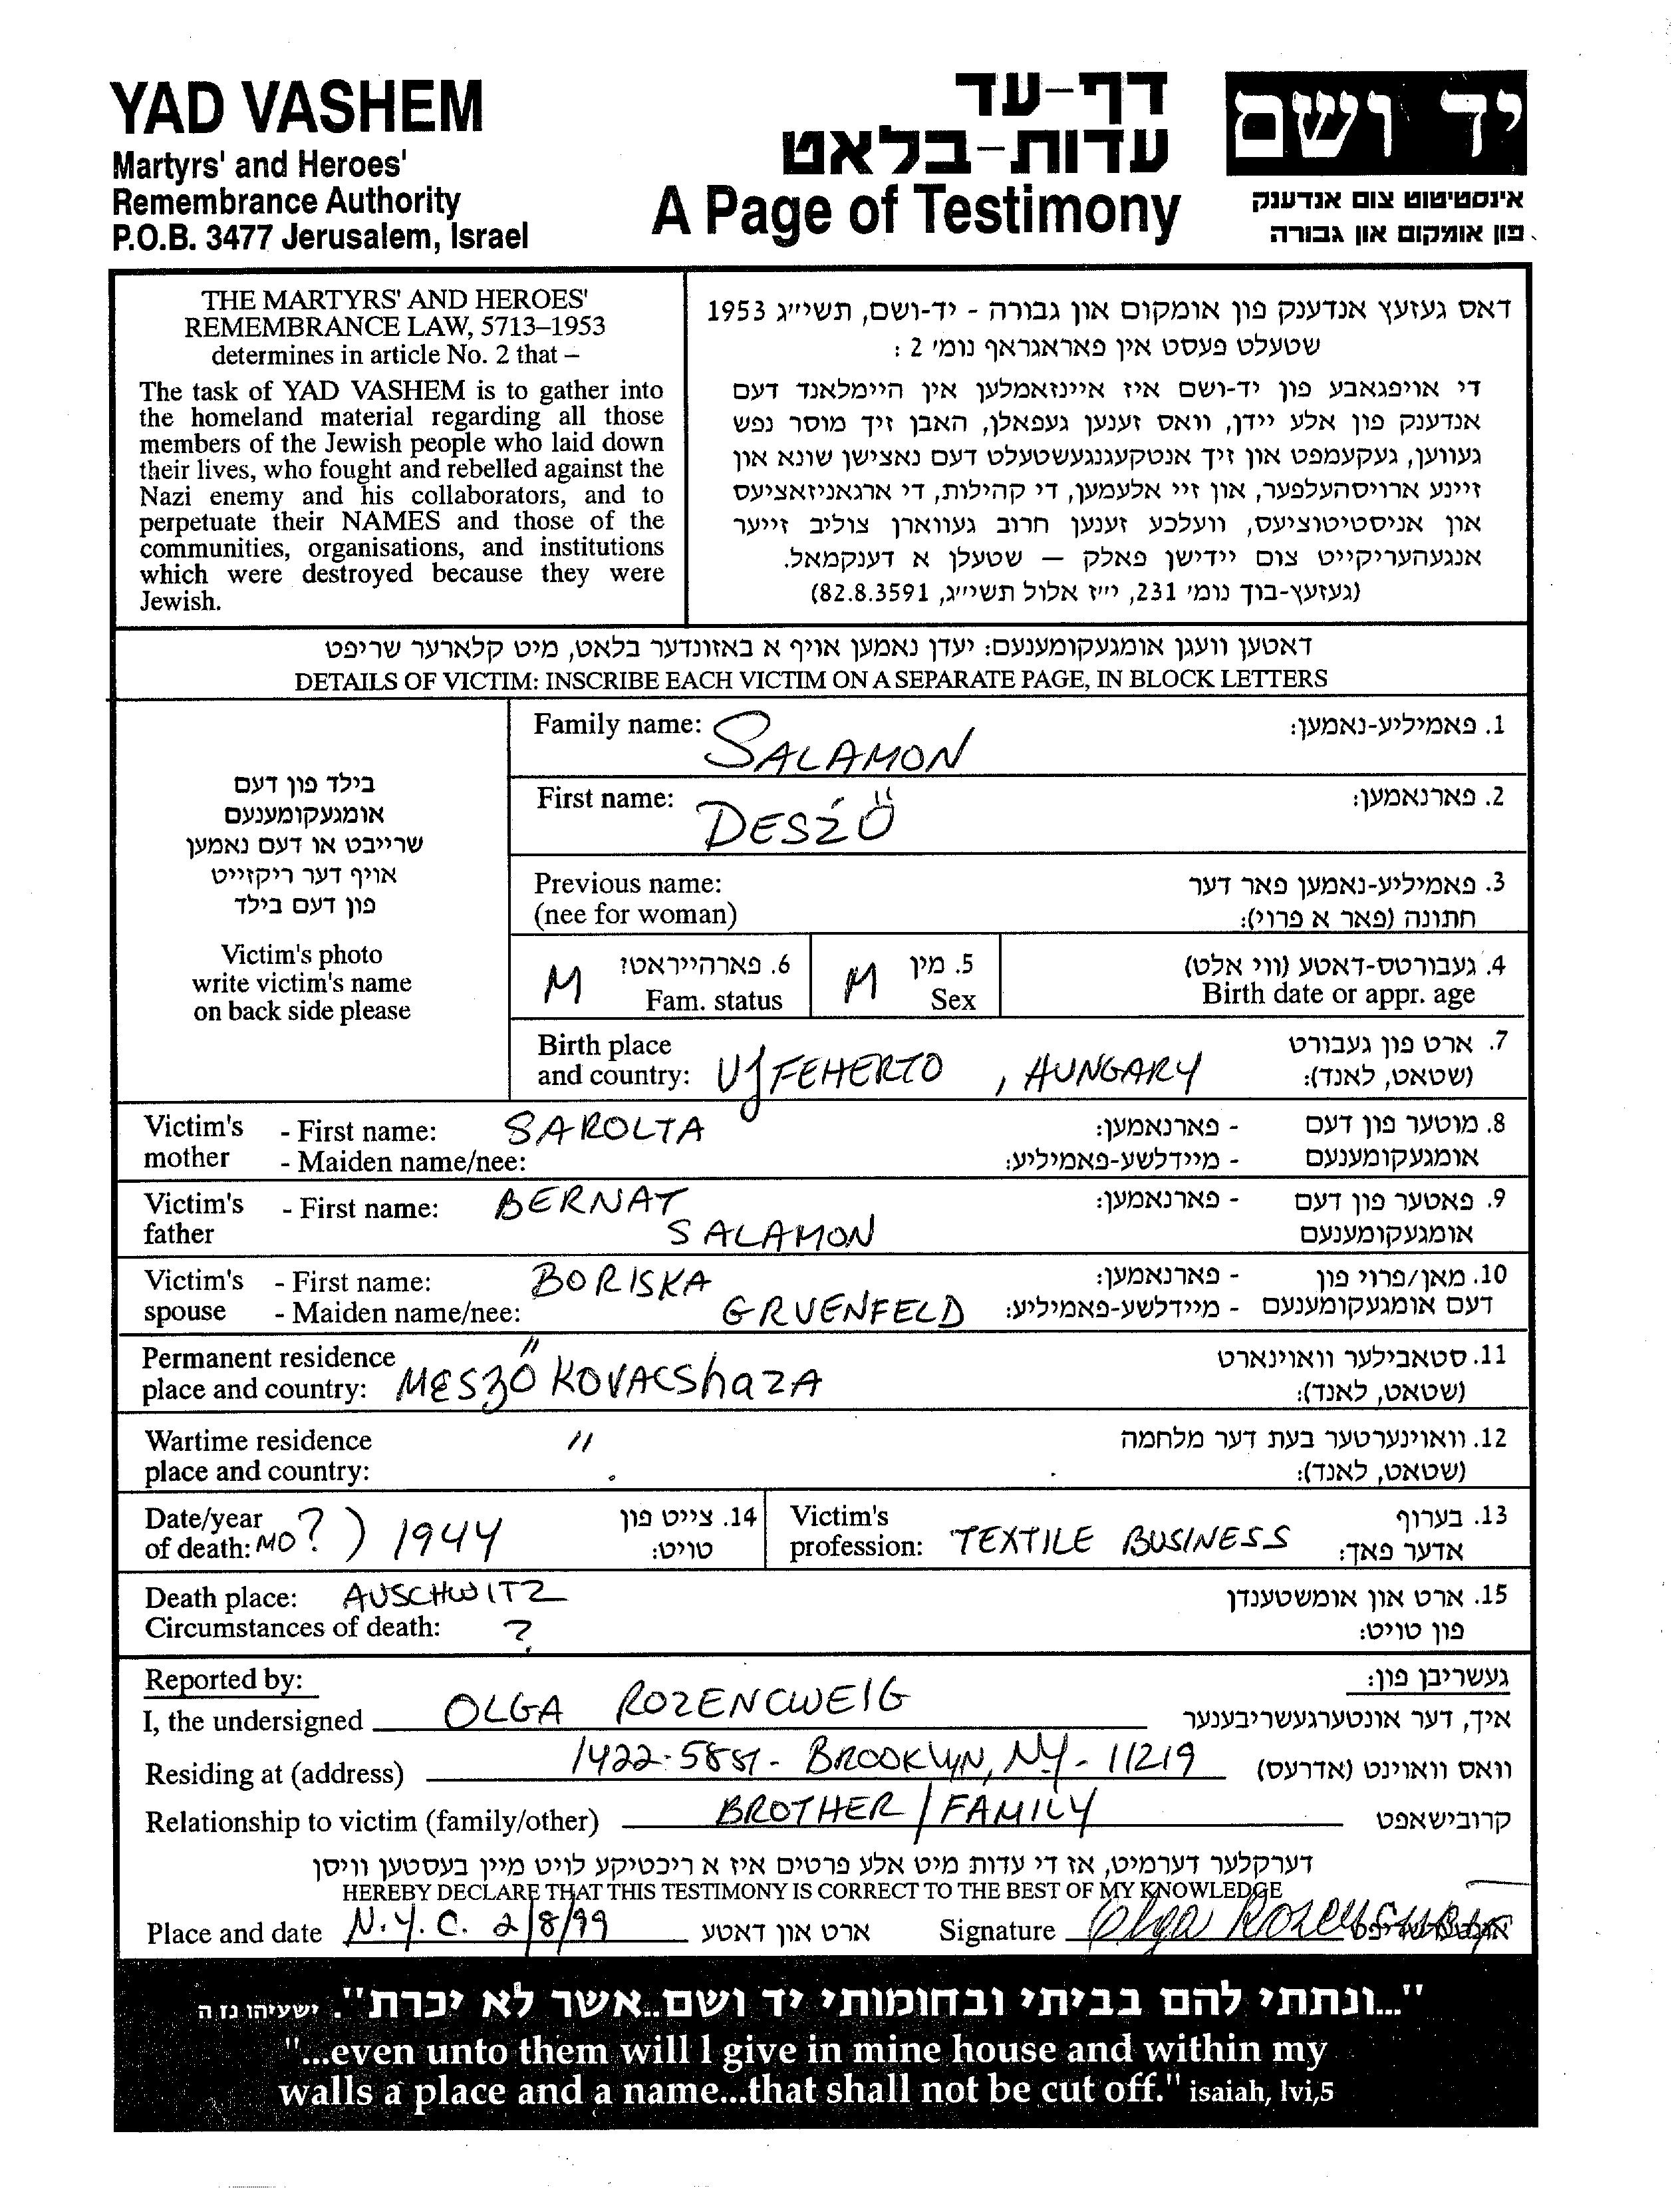 YAD VASHEM
Martyrs' and Heroes'
Remembrance Authority
P.O.B. 3477 Jerusalem, Israel
דף-עד
עדות-בלאט
A Page of Testimony
יד ושם
אינסטיטוט צום אנדענק
פון אומקום און גבורה
THE MARTYRS' AND HEROES'
REMEMBRANCE LAW, 5713–1953
determines in article No. 2 that –
The task of YAD VASHEM is to gather into
the homeland material regarding all those
members of the Jewish people who laid down
their lives, who fought and rebelled against the
Nazi enemy and his collaborators, and to
perpetuate their NAMES and those of the
communities, organisations, and institutions
which were destroyed because they were
Jewish.
דאס געזעץ אנדענק פון אומקום און גבורה - יד-ושם, תשי״ג 1953
שטעלט פעסט אין פאראגראף נומ׳ 2 :
די אויפגאבע פון יד-ושם איז איינזאמלען אין היימלאנד דעם
אנדענק פון אלע יידן, וואס זענען געפאלן, האבן זיך מוסר נפש
געווען, געקעמפט און זיך אנטקעגנגעשטעלט דעם נאצישן שונא און
זיינע ארויסהעלפער, און זיי אלעמען, די קהילות, די ארגאניזאציעס
און אניסטיטוציעס, וועלכע זענען חרוב געווארן צוליב זייער
אנגעהעריקייט צום יידישן פאלק — שטעלן א דענקמאל.
(געזעץ-בוך נומ׳ 231, י״ז אלול תשי״ג, 82.8.3591)
דאטען וועגן אומגעקומענעם: יעדן נאמען אויף א באזונדער בלאט, מיט קלארער שריפט
DETAILS OF VICTIM: INSCRIBE EACH VICTIM ON A SEPARATE PAGE, IN BLOCK LETTERS
בילד פון דעם
אומגעקומענעם
שרייבט או דעם נאמען
אויף דער ריקזייט
פון דעם בילד
Victim's photo
write victim's name
on back side please
Family name: SALAMON 1. פאמיליע-נאמען:
First name: DESZÖ 2. פארנאמען:
Previous name: 3. פאמיליע-נאמען פאר דער
(nee for woman) חתונה (פאר א פרוי):
M 6. פארהייראט? M 5. מין 4. געבורטס-דאטע (ווי אלט)
Fam. status Sex Birth date or appr. age
Birth place 7. ארט פון געבורט
and country: UJFEHERTO, HUNGARY (שטאט, לאנד):
Victim's - First name: SAROLTA - פארנאמען: 8. מוטער פון דעם
mother - Maiden name/nee: - מיידלשע-פאמיליע: אומגעקומענעם
Victim's - First name: BERNAT - פארנאמען: 9. פאטער פון דעם
father SALAMON אומגעקומענעם
Victim's - First name: BORISKA - פארנאמען: 10. מאן/פרוי פון
spouse - Maiden name/nee: GRUENFELD - מיידלשע-פאמיליע: דעם אומגעקומענעם
Permanent residence 11. סטאבילער וואוינארט
place and country: MESZÖKOVACShaZA (שטאט, לאנד):
Wartime residence " 12. וואוינערטער בעת דער מלחמה
place and country: (שטאט, לאנד):
Date/year 14. צייט פון Victim's 13. בערוף
of death: MO?) 1944 טויט: profession: TEXTILE BUSINESS אדער פאך:
Death place: AUSCHWITZ 15. ארט און אומשטענדן
Circumstances of death: ? פון טויט:
Reported by: געשריבן פון:
I, the undersigned OLGA ROZENCWEIG איך, דער אונטערגעשריבענער
Residing at (address) 1422-58ST- BROOKLYN, NY- 11219 וואס וואוינט (אדרעס)
Relationship to victim (family/other) BROTHER/FAMILY קרובישאפט
דערקלער דערמיט, אז די עדות מיט אלע פרטים איז א ריכטיקע לויט מיין בעסטען וויסן
HEREBY DECLARE THAT THIS TESTIMONY IS CORRECT TO THE BEST OF MY KNOWLEDGE
Place and date N.Y.C. 2/8/99 ארט און דאטע Signature Olga
"...ונתתי להם בביתי ובחומותי יד ושם...אשר לא יכרת". ישעיהו נז ה
"...even unto them will I give in mine house and within my
walls a place and a name...that shall not be cut off." isaiah, lvi,5